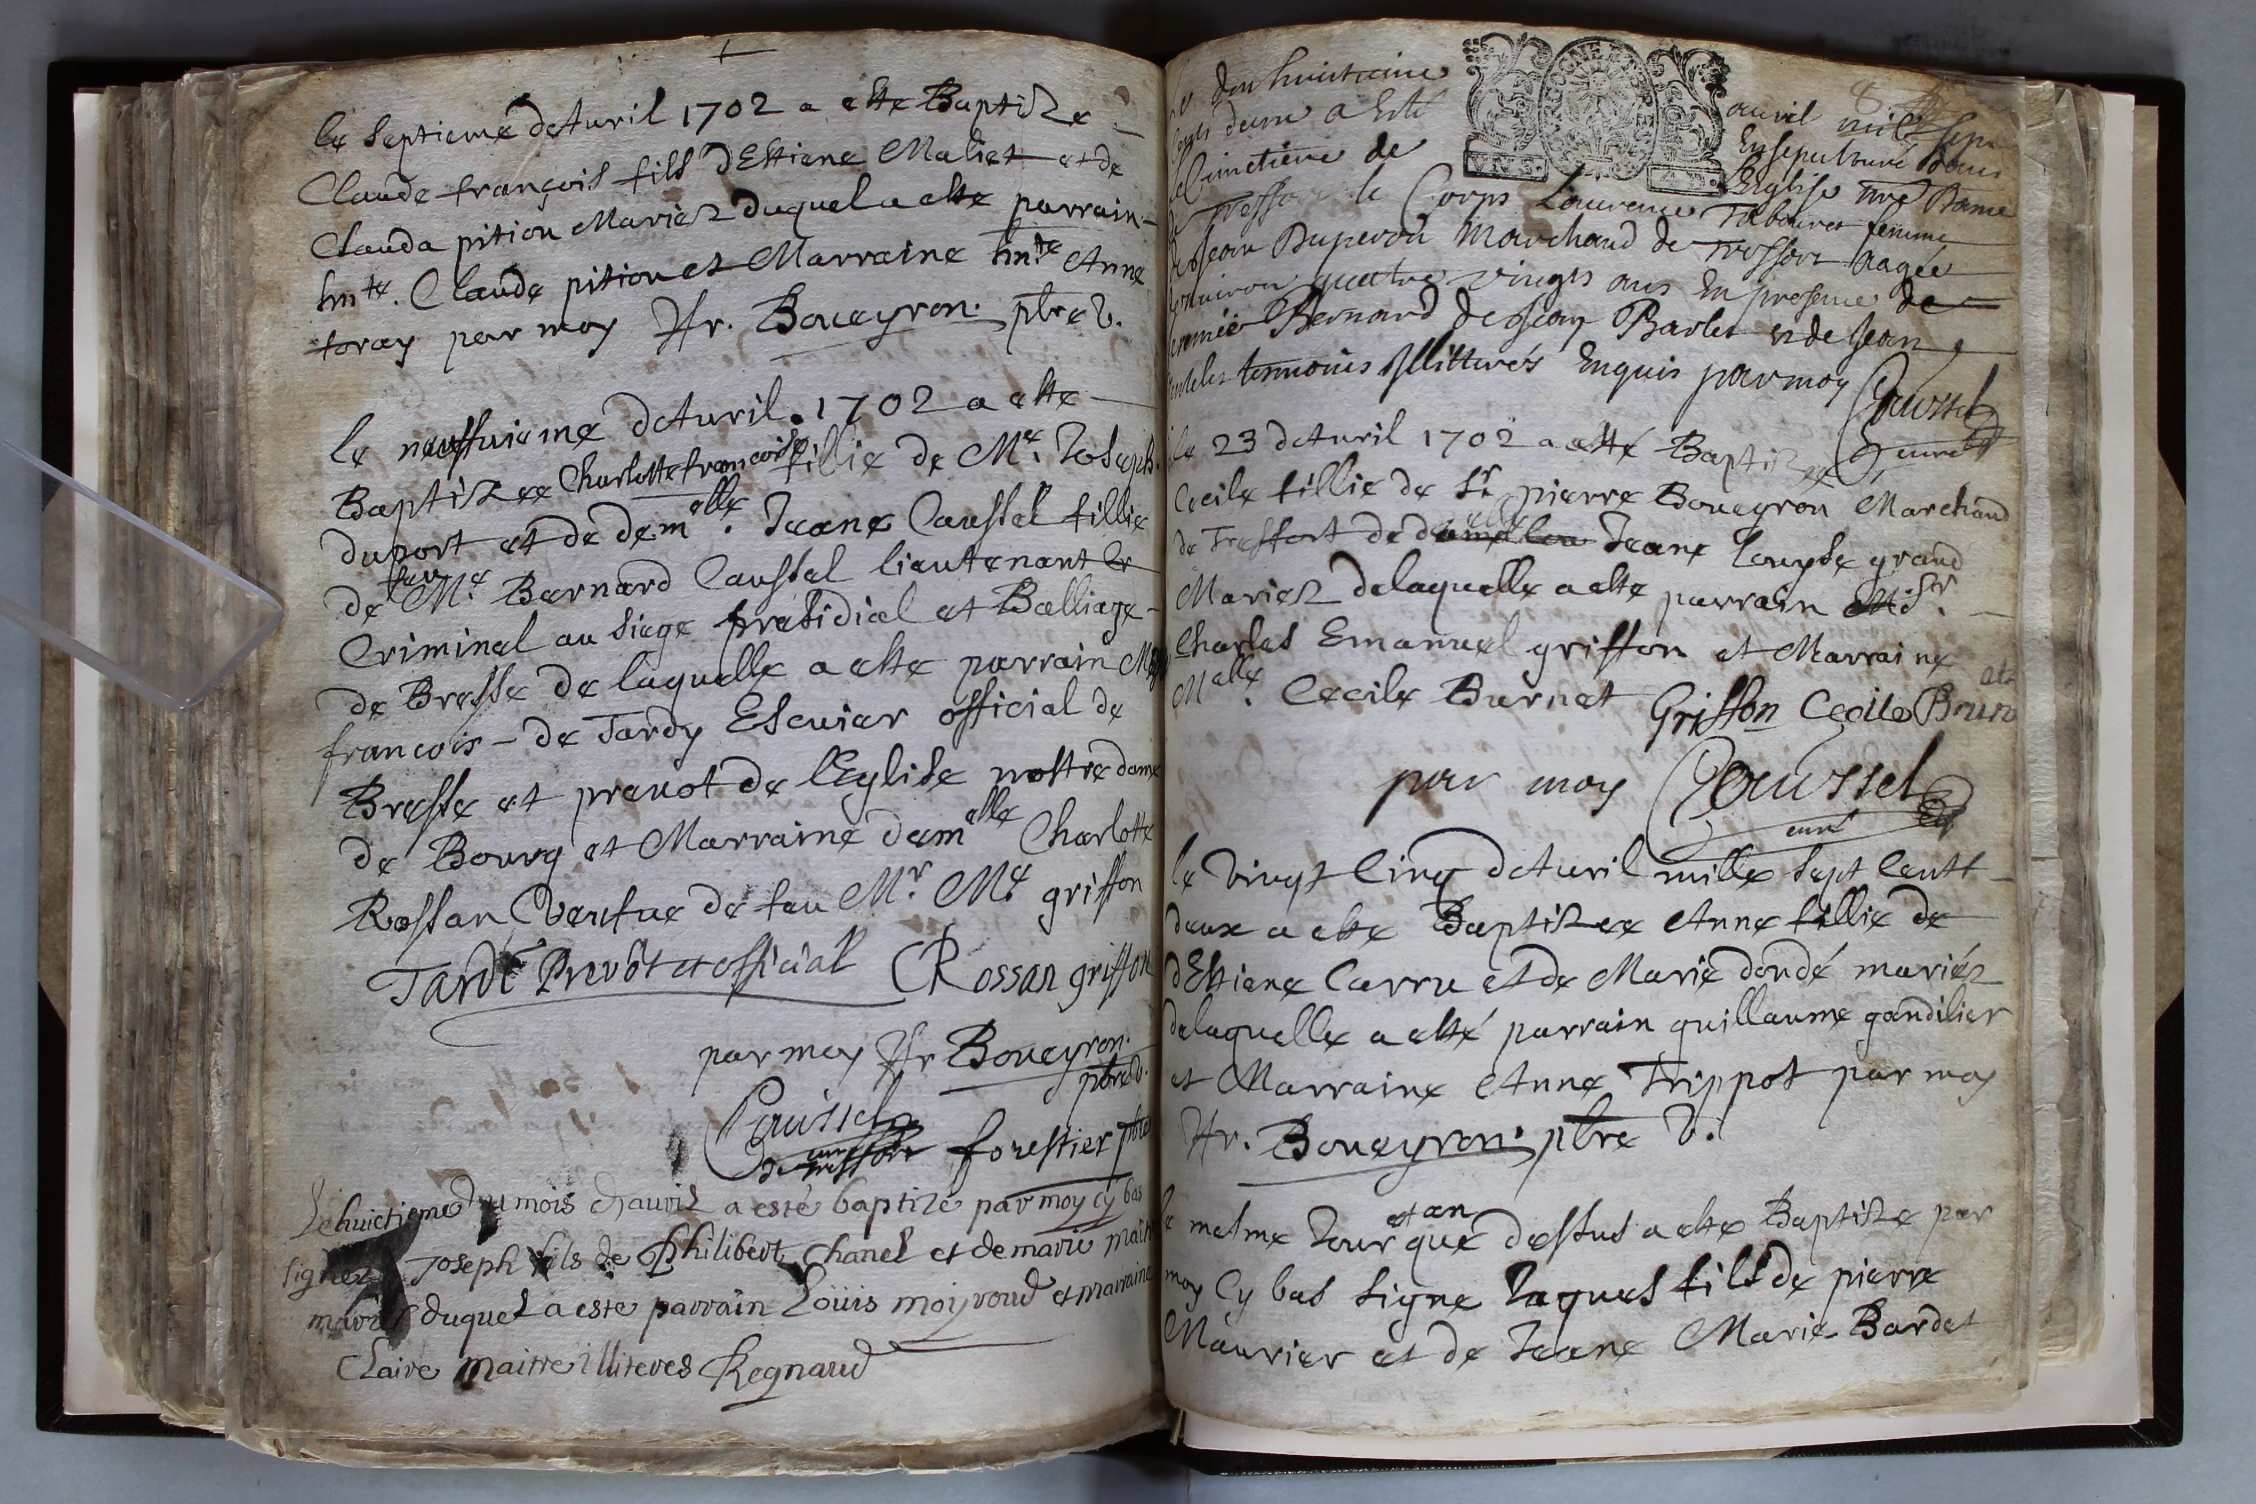 le septieme dAuril 1702 a este Baptize
Claude françois fils dEstiene Maliet et de
Clauda pition Mariez duquel a este parrain
hnte. Claude pition et Marraine hnte Anne
toray par moy Hr. Boueyron. pbre V.
le neufuieme dAuril. 1702 a este
Baptizee Charlotte francoise fillie de Me. Joseph
duport et de demelle. Jeane Caussel fillie
de feu Me. Bernard Caussel lieutenant
Criminel au siege presidial et Balliage
de Bresse de laquelle a este parrain
francois de Tardy Escuier official de
Bresse et preuot de l'Eglise nostre dame
de Bourg et Marraine demelle Charlotte
Rossan Veufue de feu Mr. Me. griffon
Tardi Prevôt et official C Rossan griffon
par moy Hr Boueyron.
pbre V.
Caussel forestier pbre
curé
de treffort
Le huictieme du mois dauril a esté baptizé par moy cy bas
signez Joseph fils de Philibert Chanel et de marie
mariés duquel a este parrain Loüis moyroud et marraine
Claire maitre illiteres Regnaud
du huictieme auril mil sept
deux a Esté Ensepulturé dans
Cimetiere de L'Eglise nre Dame
de tressort le Corps Laurence Tabouret femme
de Jean Duperou Marchand de tressort aagée
enuiron quatre vingts ans En presence de
Bernard de Jean Barlet et de Jean
tesmoins Illitterés Enquis par moy Caussel
curé
le 23 dAuril 1702 a esté Baptizee
Cecile fillie de Sr pierre Boueyron Marchand
de Tressort de delle Jeane Louyse grand
Mariez delaquelle a este parrain Sr.
Charles Emanuel griffon et Marraine
Melle. Cecile Burnet Griffon Cecile
par moy Caussel
curé
le Vingt Cinq dAuril mille sept Centt
deux a este Baptizee Anne fillie de
dEstiene Carru et de Marie dondé mariéz
delaquelle a esté parrain guillaume gandilier
et Marraine Anne Trippot par moy
Hr. Boueyron. pbre V.
le mesme Jour et an que dessus a este Baptize par
moy Cy bas signe Jaques fils de pierre
Maurier et de Jeane Marie Bardet